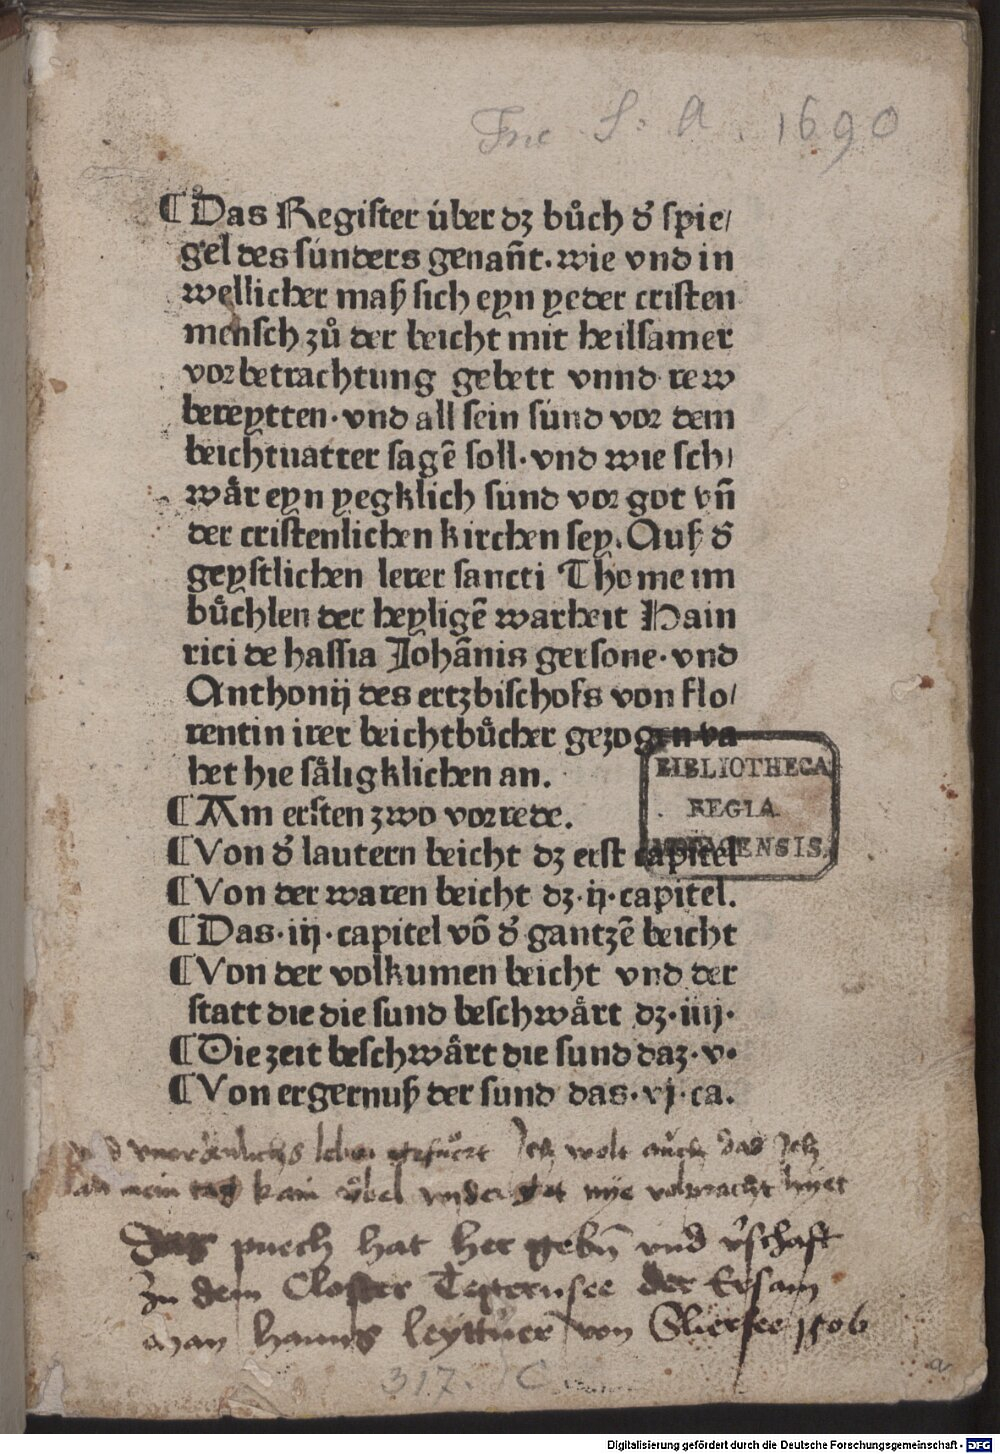 Inc. s. a. 1690
¶Das Regiſter úber dz bůch d̕ ſpie/
gel des ſúnders genan̄t. wie vnd in
wellicher maß ſich eyn yeder criſten
menſch zů der beicht mit heilſamer
vorbetrachtung gebett vnnd rew
bereytten. vnd all ſein ſúnd vor dem
beichtuatter ſagē ſoll. vnd wie ſch/
wåꝛ eyn yegklich ſúnd vor got vn̄
der criſtenlichen kirchen ſey. Auß d̕
geyſtlichen lerer ſancti Thome im
bůchlen der heyligē warheit Hain
rici de haſſia Johānis gerſone. vnd
Anthonij des ertzbiſchofs von flo/
rentin irer beichtbůcher gezogen va
het hie ſåligklichen an.
¶Am erſten zwo vorrede.
¶Von d̕ lautern beicht dz erſt capitel
¶Von der waren beicht dz. ij. capitel.
¶Das. iij. capitel vō d̕ gantzē beicht
¶Von der volkumen beicht vnd der
ſtatt die die ſund beſchwårt dz. iiij.
¶Die zeit beſchwårt die ſund daz. v.
¶Von ergernuß der ſund das. vj. ca.
BIBLIOTHECA
REGIA
MONACENSIS.
vnordenlichs leben gefuert Ich wolt auch das Ich
mein tag kain vbel wider got nye volbracht hiet
Das puech hat her gebn̄ vnd v̕schafft
Zu dem Closter Tegernsee der Ersam
man hanns leyttner von Sliersee 1506
317. C.
a
Digitalisierung gefördert durch die Deutsche Forschungsgemeinschaft - DFG